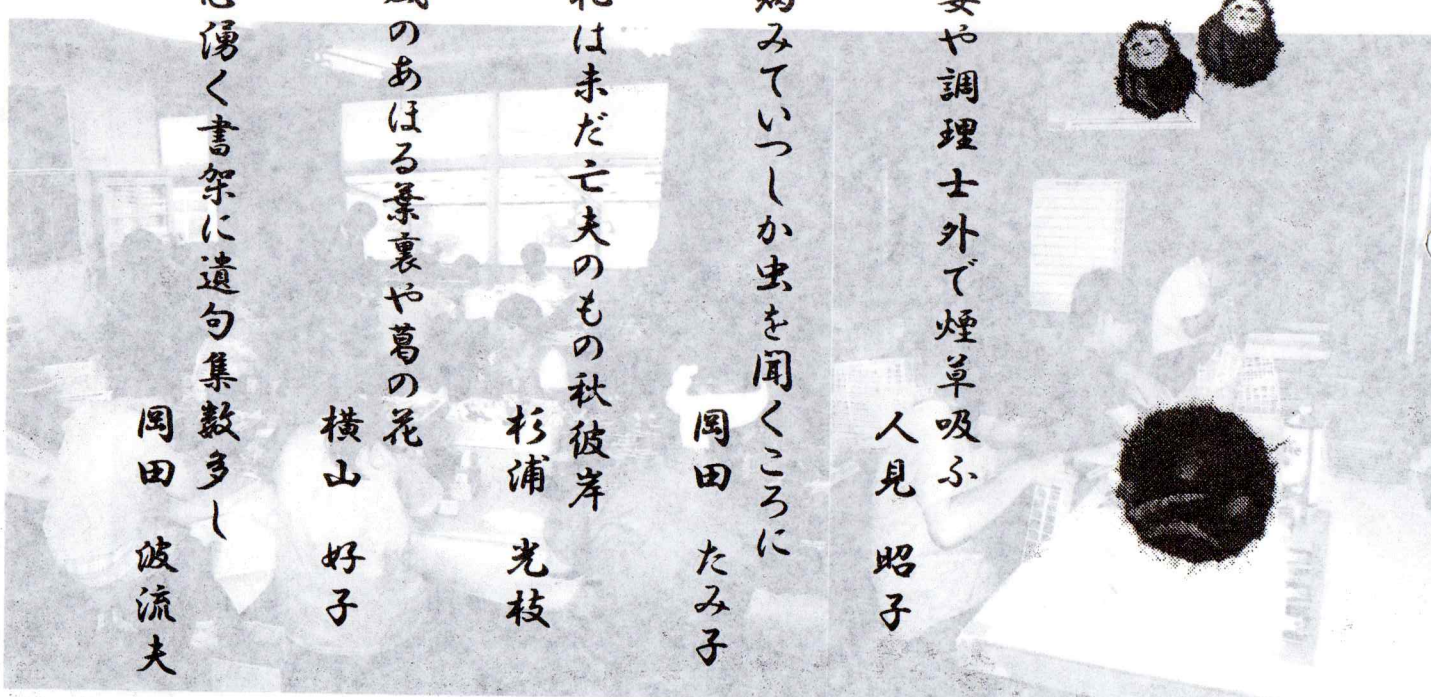 や調理士外で煙草吸ふ
人見 昭子
みていつしか虫を聞くころに
岡田 たみ子
は未だ亡夫のもの秋彼岸
杉浦 光枝
のあほる葉裏や葛の花
横山 好子
湧く書架に遺句集数多し
岡田 波流夫